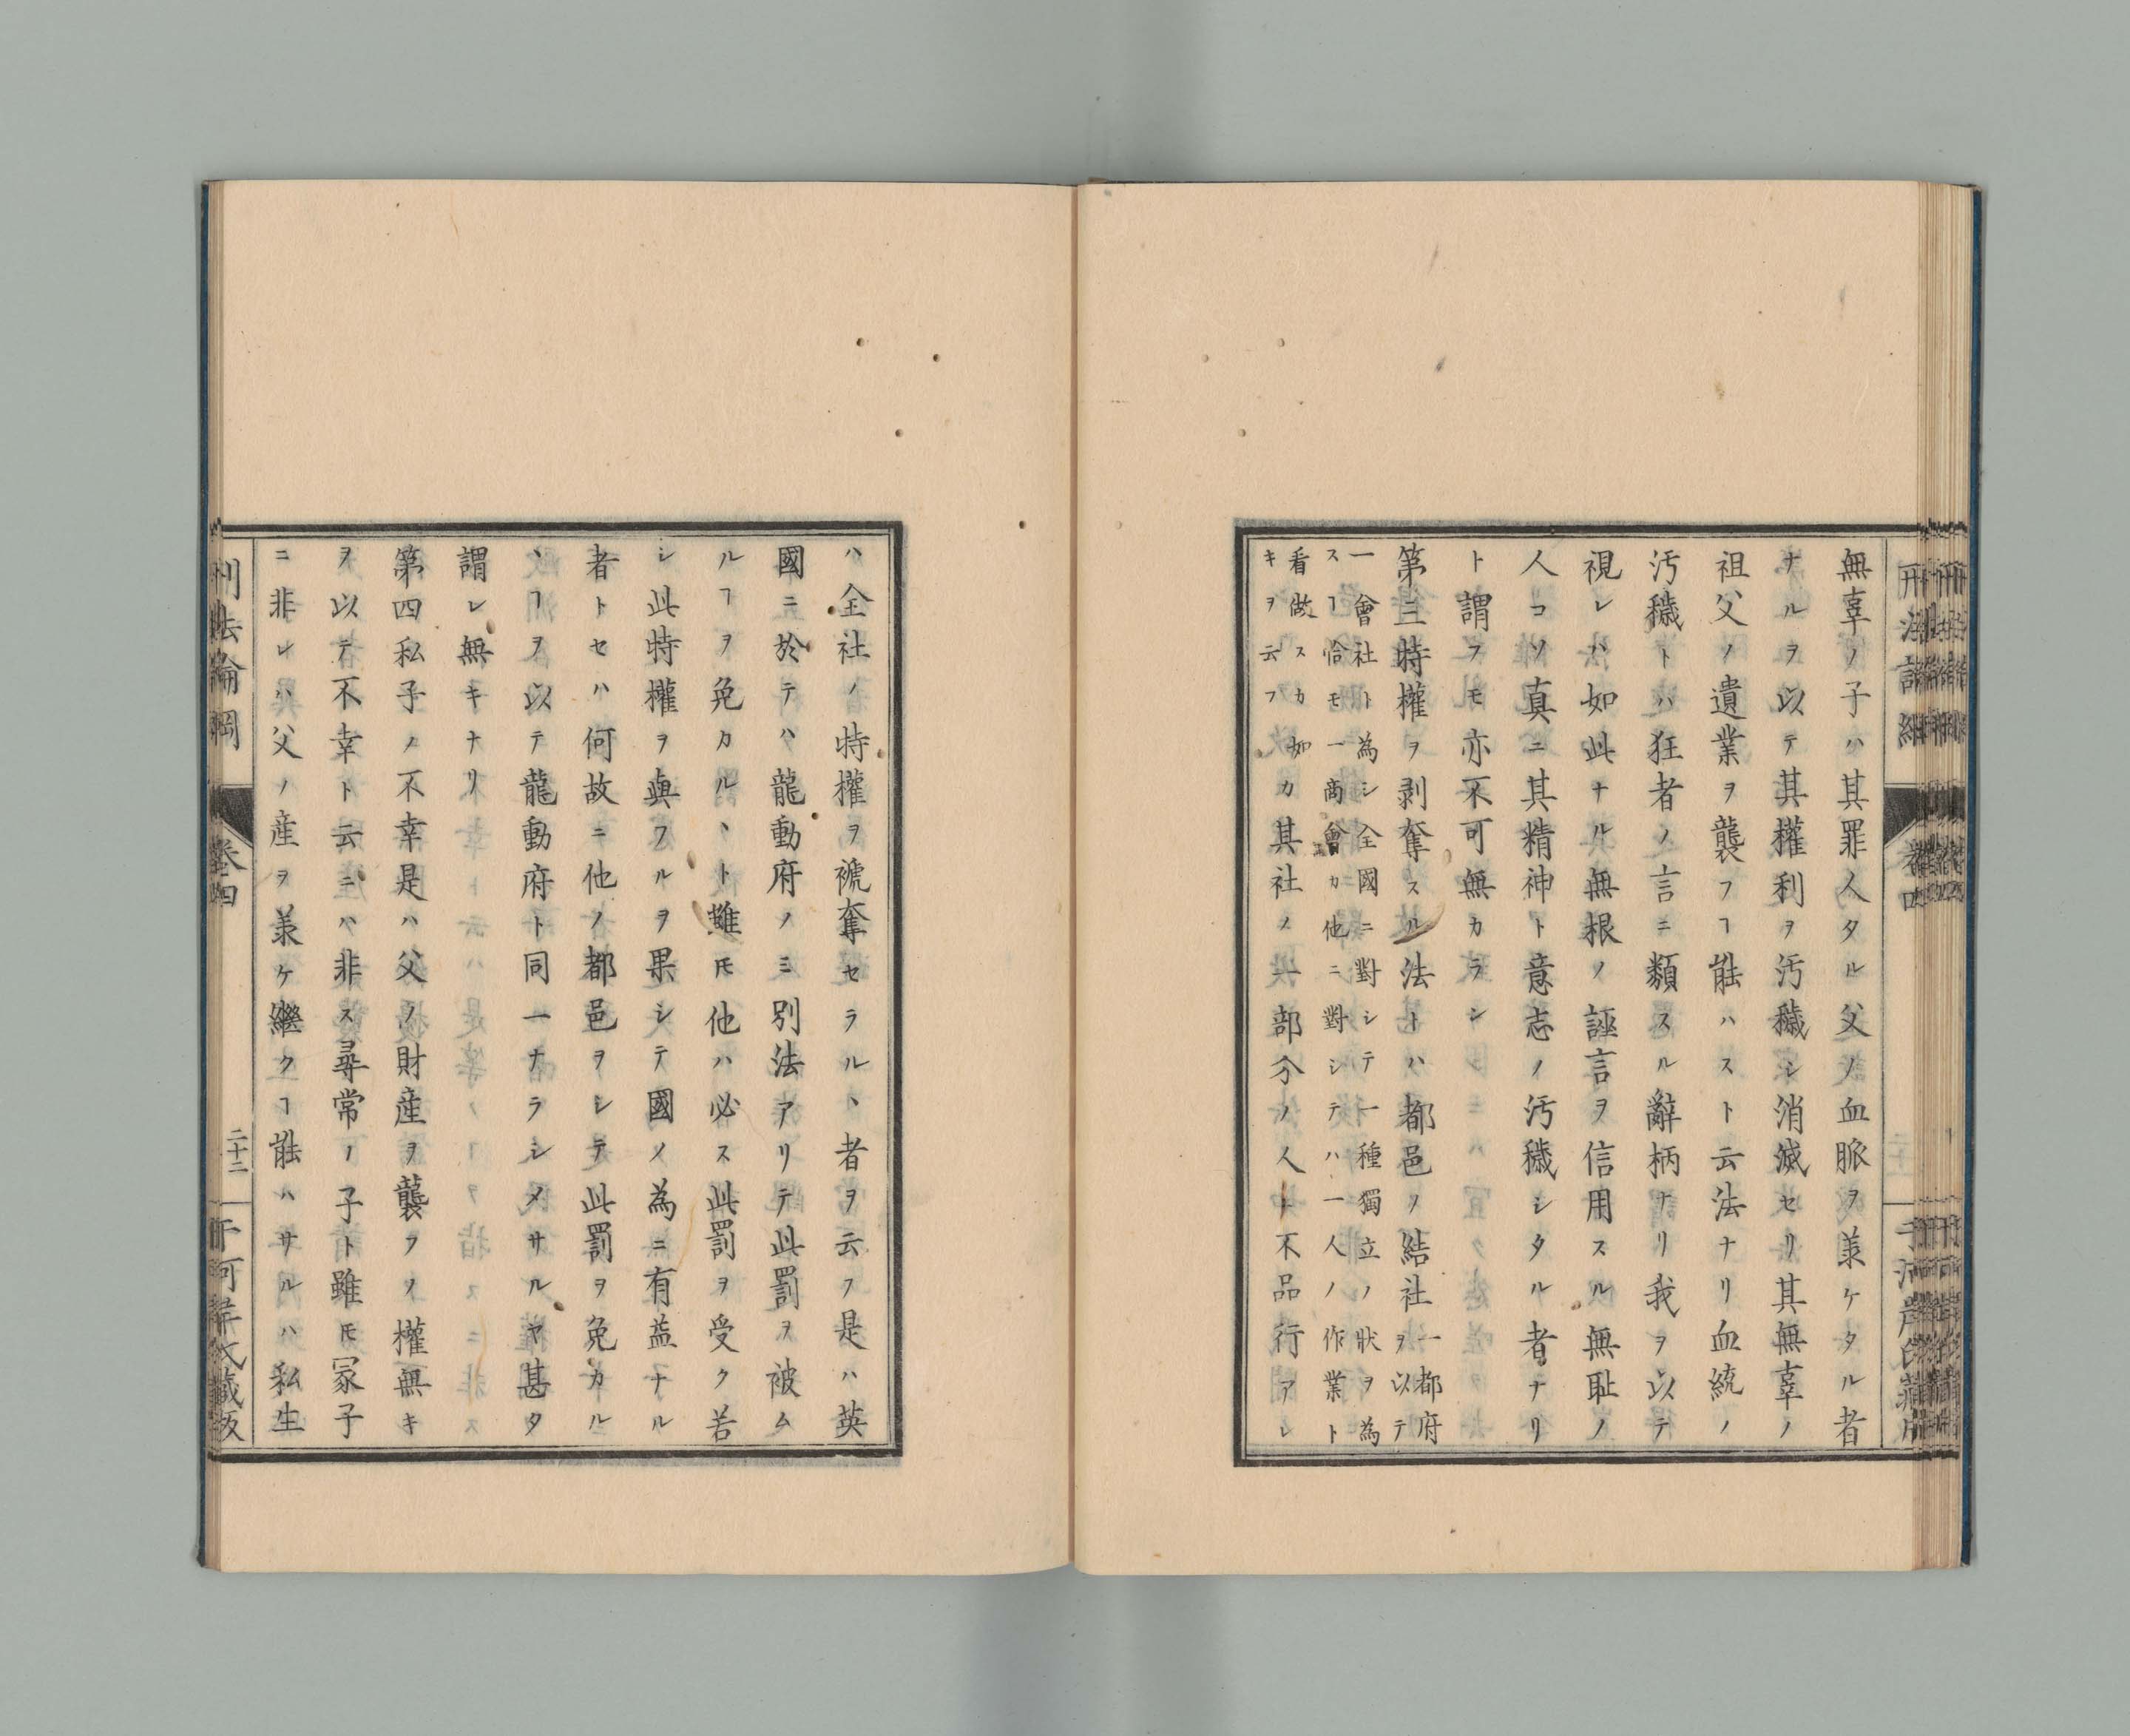 無辜ノ子ハ其罪人タル父ノ血脈ヲ羕ケタル者
ナルヲ以テ其權利ヲ汚穢シ消滅セリ其無辜ノ
祖父ノ遺業ヲ襲フヿ能ハスト云法ナリ血統ノ
汚穢トハ狂者ノ言ニ類スル辭柄ナリ我ヲ以テ
視レハ如此ナル無根ノ誣言ヲ信用スル無耻ノ
人コソ真ニ其精神ト意志ノ汚穢シタル者ナリ
ト謂フモ亦不可無カラン
第三特權ヲ剥奪スル法トハ都邑ノ結社
一都府
ヲ以テ
一會社ト為シ全國ニ對シテ一種獨立ノ狀ヲ為
スヿ恰モ一商會カ他ニ對シテハ一人ノ作業ト
看做スカ如
キヲ云フ
カ其社ノ某部分ノ人ト不品行アレ
ハ全社ノ特權ヲ褫奪セラルヽ者ヲ云フ是ハ英
國ニ於テハ龍動府ノミ別法アリテ此罰ヲ被ム
ルヿヲ免カルヽト雖モ他ハ必ス此罰ヲ受ク若
シ此特權ヲ與フルヲ果シテ國ノ為ニ有益ナル
者トセハ何故ニ他ノ都邑ヲシテ此罰ヲ免カル
ヽヿヲ以テ龍動府ト同一ナラシメサルヤ甚タ
謂レ無キナリ
第四私子ノ不幸是ハ父ノ財産ヲ襲フノ權無キ
ヲ以テ不幸ト云ニハ非ス尋常ノ子ト雖モ冢子
ニ非レハ父ノ産ヲ羕ケ繼クヿ能ハサルハ私生
刑法論綱
卷四
二十二